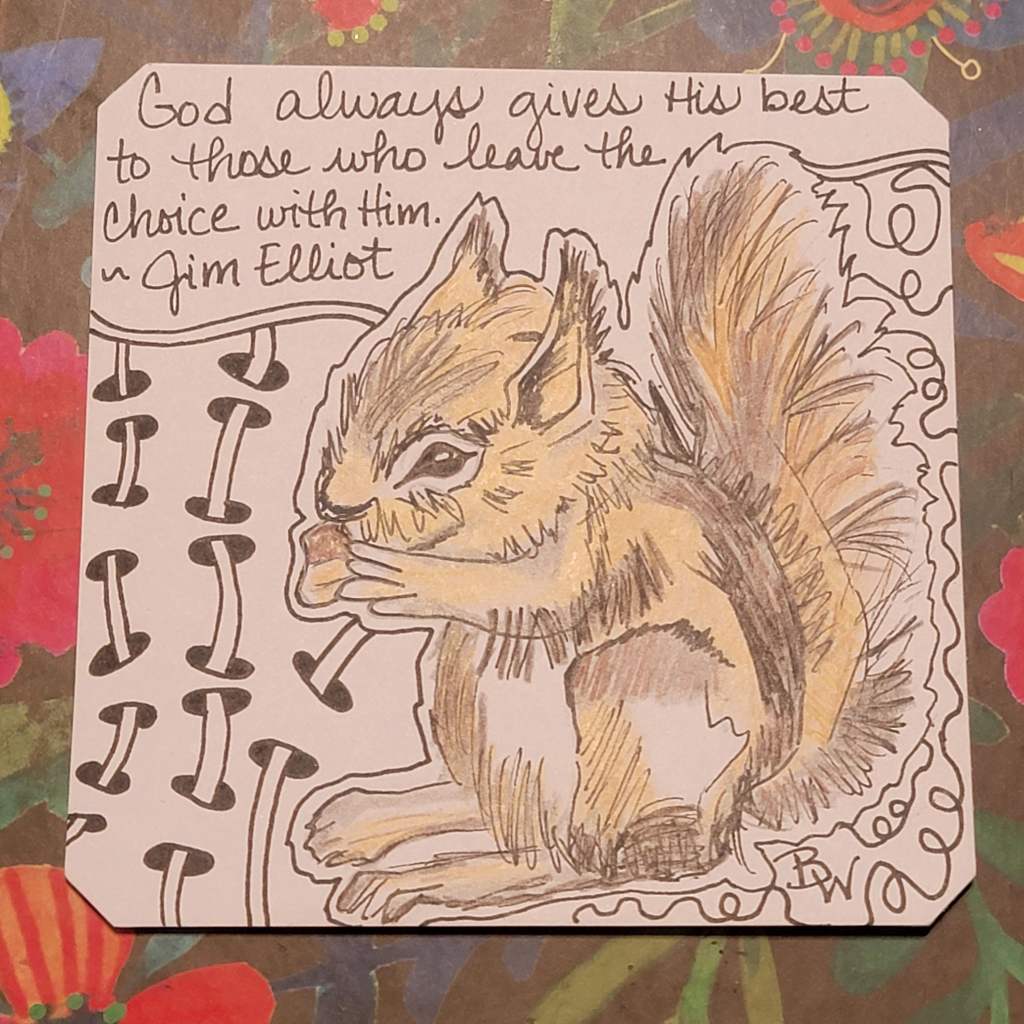 God always gives His best
to those who leave the
choice with Him.
~ Jim Elliot
BW